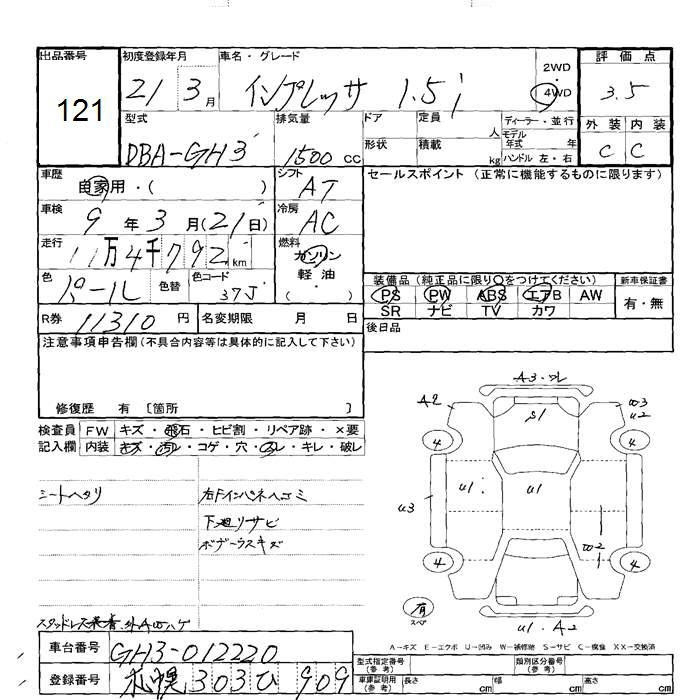 出品番号 初度登録年月 車名・グレード 評価点
121 21 3月 インプレッサ 1.5i 2WD 4WD 3.5
型式 排気量 ドア 定員 人 ディーラー・並行 外装 内装
DBA-GH3 1500cc 形状 積載 kg モデル年式 年 ハンドル 左・右 C C
車歴 自家用・( ) シフト AT セールスポイント (正常に機能するものに限ります)
車検 9年3月(21日) 冷房 AC
走行 11万4千792km 燃料 ガソリン
軽油
色 パール 色替 色コード 37J ( )
装備品(純正品に限り○をつけてください) 新車保証書
PS PW ABS エアB AW 有・無
SR ナビ TV カワ
R券 11310円 名変期限 月 日 後日品
注意事項申告欄(不具合内容等は具体的に記入して下さい)
修復歴 有〔箇所 〕
検査員 FW キズ・飛石・ヒビ割・リペア跡・×要
記入欄 内装 キズ・汚れ・コゲ・穴・スレ・キレ・破レ
シートヘタリ 右Fインパネヘコミ
下廻リサビ
ボデーウスキズ
A3・ワレ
A2 S1 W3
U2
4 4
U3 U1 U1
W2
4 4
有
スペア
U1・A2
A-キズ E-エクボ U-凹み W-補修跡 S-サビ C-腐食 XX-交換済
車台番号 GH3-012220
登録番号 札幌 303 ひ 909
型式指定番号(参考) 類別区分番号(参考)
車庫証明用(参考) 長さ cm 幅 cm 高さ cm